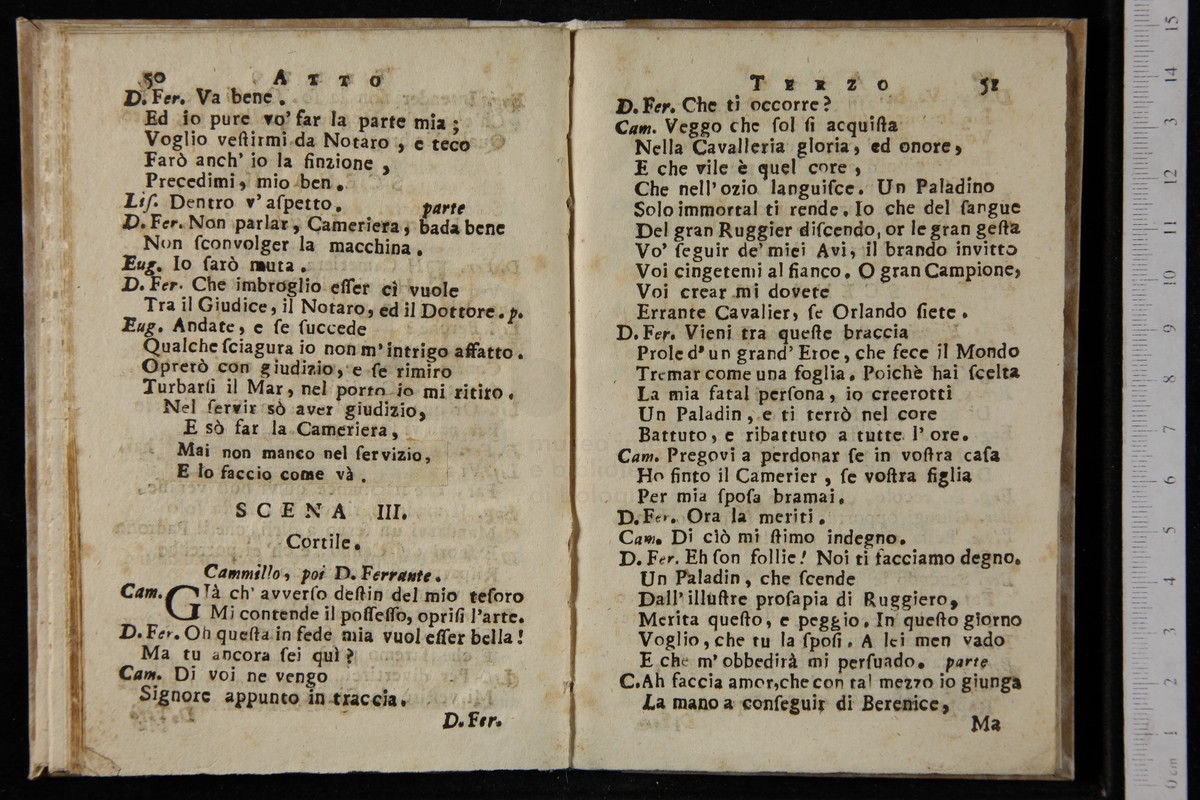 50 ATTO
D. Fer. Va bene .
Ed io pure vo' far la parte mia ;
Voglio veſtirmi da Notaro , e teco
Farò anch' io la finzione ,
Precedimi, mio ben .
Liſ. Dentro v' aſpetto . parte
D. Fer. Non parlar, Cameriera, bada bene
Non ſconvolger la macchina .
Eug. Io farò muta .
D. Fer. Che imbroglio eſſer ci vuole
Tra il Giudice, il Notaro, ed il Dottore . p.
Eug. Andate, e ſe ſuccede
Qualche ſciagura io non m' intrigo affatto .
Oprerò con giudizio, e ſe rimiro
Turbarſi il Mar, nel porto io mi ritiro .
Nel ſervir sò aver giudizio,
E sò far la Cameriera,
Mai non manco nel ſervizio,
E lo faccio come và .
SCENA III.
Cortile.
Cammillo, poi D. Ferrante .
Cam. GIà ch' avverſo deſtin del mio teſoro
Mi contende il poſſeſſo, opriſi l'arte.
D. Fer. Oh queſta in fede mia vuol eſſer bella !
Ma tu ancora ſei quì ?
Cam. Di voi ne vengo
Signore appunto in traccia.
D. Fer.
TERZO 51
D. Fer. Che ti occorre ?
Cam. Veggo che ſol ſi acquiſta
Nella Cavalleria gloria, ed onore,
E che vile è quel core ,
Che nell' ozio languiſce. Un Paladino
Solo immortal ti rende. Io che del ſangue
Del gran Ruggier diſcendo, or le gran geſta
Vo' ſeguir de' miei Avi, il brando invitto
Voi cingetemi al fianco. O gran Campione,
Voi crear mi dovete
Errante Cavalier, ſe Orlando ſiete .
D. Fer. Vieni tra queſte braccia
Prole d' un grand' Eroe, che fece il Mondo
Tremar come una foglia. Poichè hai ſcelta
La mia fatal perſona, io creerotti
Un Paladin , e ti terrò nel core
Battuto, e ribattuto a tutte l' ore.
Cam. Pregovi a perdonar ſe in voſtra caſa
Ho finto il Camerier , ſe voſtra figlia
Per mia ſpoſa bramai.
D. Fer. Ora la meriti .
Cam. Di ciò mi ſtimo indegno.
D. Fer. Eh ſon follie ! Noi ti facciamo degno.
Un Paladin , che ſcende
Dall' illuſtre proſapia di Ruggiero,
Merita queſto, e peggio. In queſto giorno
Voglio, che tu la ſpoſi . A lei men vado
E che m' obbedirà mi perſuado. parte
C. Ah faccia amor, che con tal mezzo io giunga
La mano a conſeguir di Berenice,
Ma